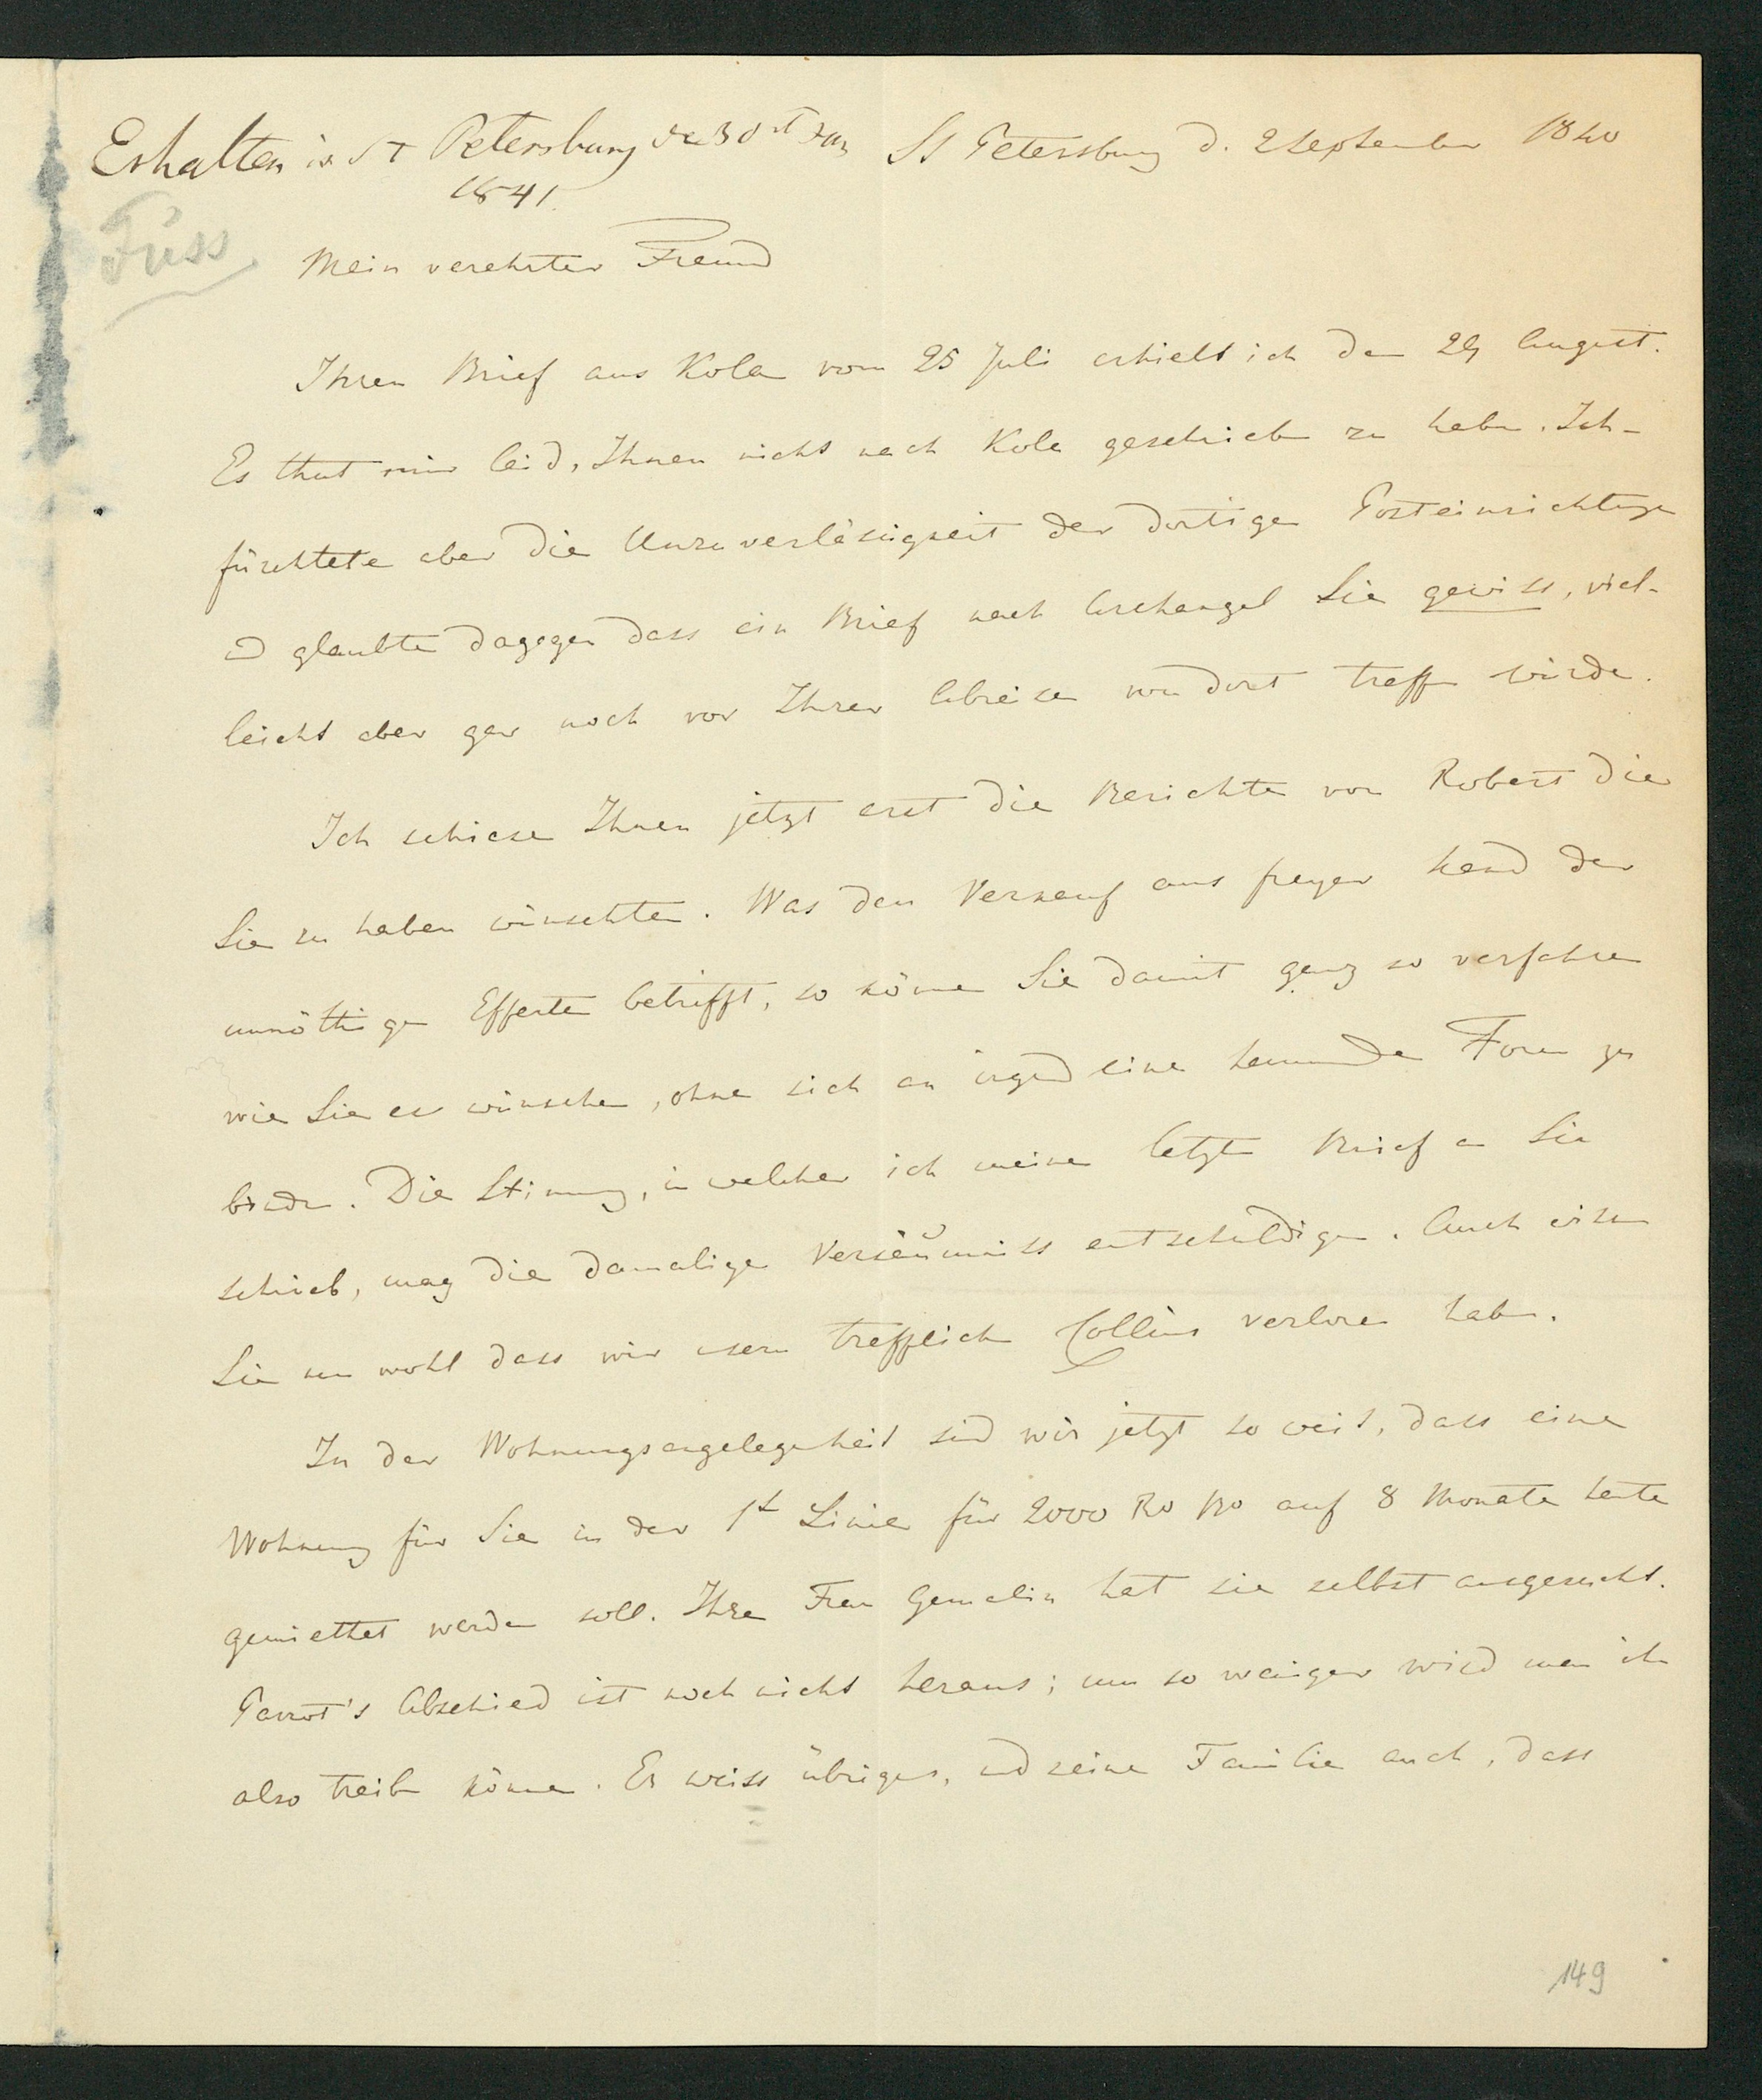 Erhalten in St Petersburg den 30st Jan
1841.
St Petersburg d. 2 September 1840
Fuss
Mein verehrter Freund
Ihren Brief aus Kola vom 25 Juli erhielt ich den 29 August.
Es thut mir leid, Ihnen nicht nach Kola geschrieben zu haben. Ich
fürchtete aber die Unzuverläsigkeit der dortigen Posteinrichtungen
und glaubte dagegen dass ein Brief nach Archangel Sie gewiss, viel-
leicht aber gar noch vor Ihrer Abreise von dort treffen würde.
Ich schicke Ihnen jetzt erst die Berichte von Robert die
Sie zu haben wünschten. Was den Verkauf aus freyer Hand der
unnöthigen Effecten betrifft, so können Sie damit ganz so verfahren
wie Sie es wünschen, ohne sich an irgend eine hemmende Form zu
binden. Die Stimung, in welcher ich meinen letzten Brief an Sie
schrieb, mag die damalige Versäumniss entschuldigen. Auch wissen
Sie nun wohl dass wir usern trefflichen Collins verloren haben.
In der Wohnungsangelegenheit sind wir jetzt so weit, dass eine
Wohnung für Sie in der 1t Linie für 2000 Ro Bo auf 8 Monate heute
gemiethet werden soll. Ihre Frau Gemalin hat sie selbst ausgesucht.
Parrot's Abschied ist noch nicht heraus; um so weniger wird man ihn
also treiben können. Er weiss übrigens, und seine Familie auch, dass
149